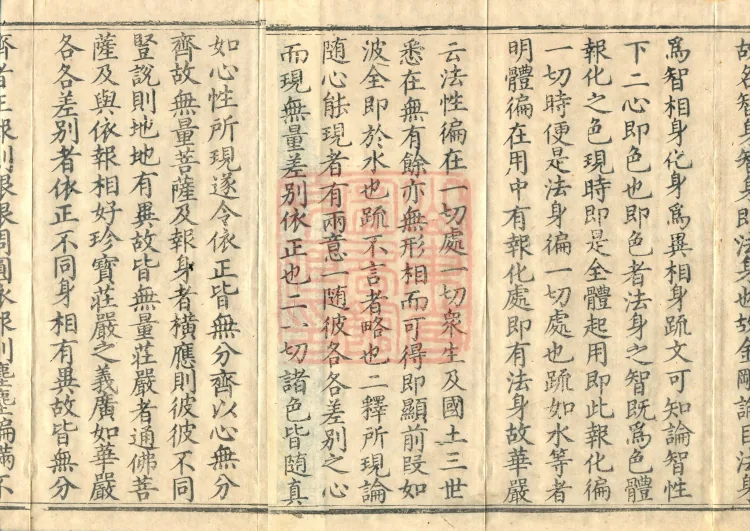 故名智身智身即法身也故金剛論曰法身
為智相身化身為異相身疏文可知論智性
下二心即色也即色者法身之智既為色體
報化之色現時即是全體起用即此報化徧
一切時便是法身徧一切處也疏如水等者
明體徧在用中有報化處即有法身故華嚴
云法性徧在一切處一切衆生及國土三世
悉在無有餘亦無形相而可得即顯前段如
波全即於水也疏不言者略也二釋所現論
随心能現者有兩意一随彼各各差別之心
而現無量差別依正也二一切諸色皆随真
如心性所現遂令依正皆無分齊以心無分
齊故無量菩薩及報身者橫應則彼彼不同
豎說則地地有異故皆無量莊嚴者通佛菩
薩及與依報相好珍寶莊嚴之義廣如華嚴
各各差別者依正不同身相有異故皆無分
齊者正報則根根周圓依報則塵塵徧滿不